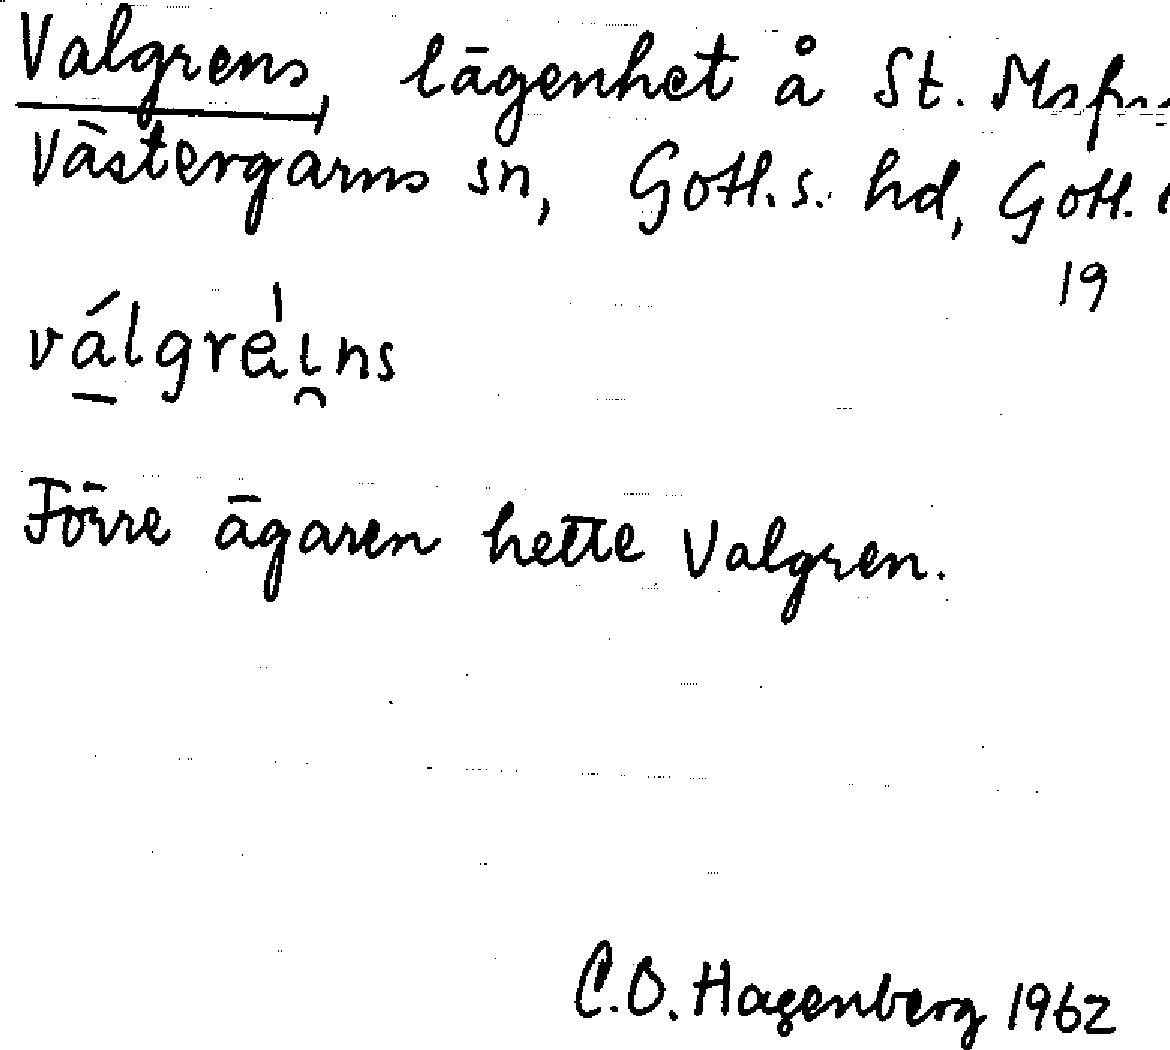 Valgrens, lägenhet å St.
Västergarns sn, Gotl. s. hd, Gotl.
19
válgre̍i̯ns
Förre ägaren hette Valgren.
C.O. Hagenberg 1962